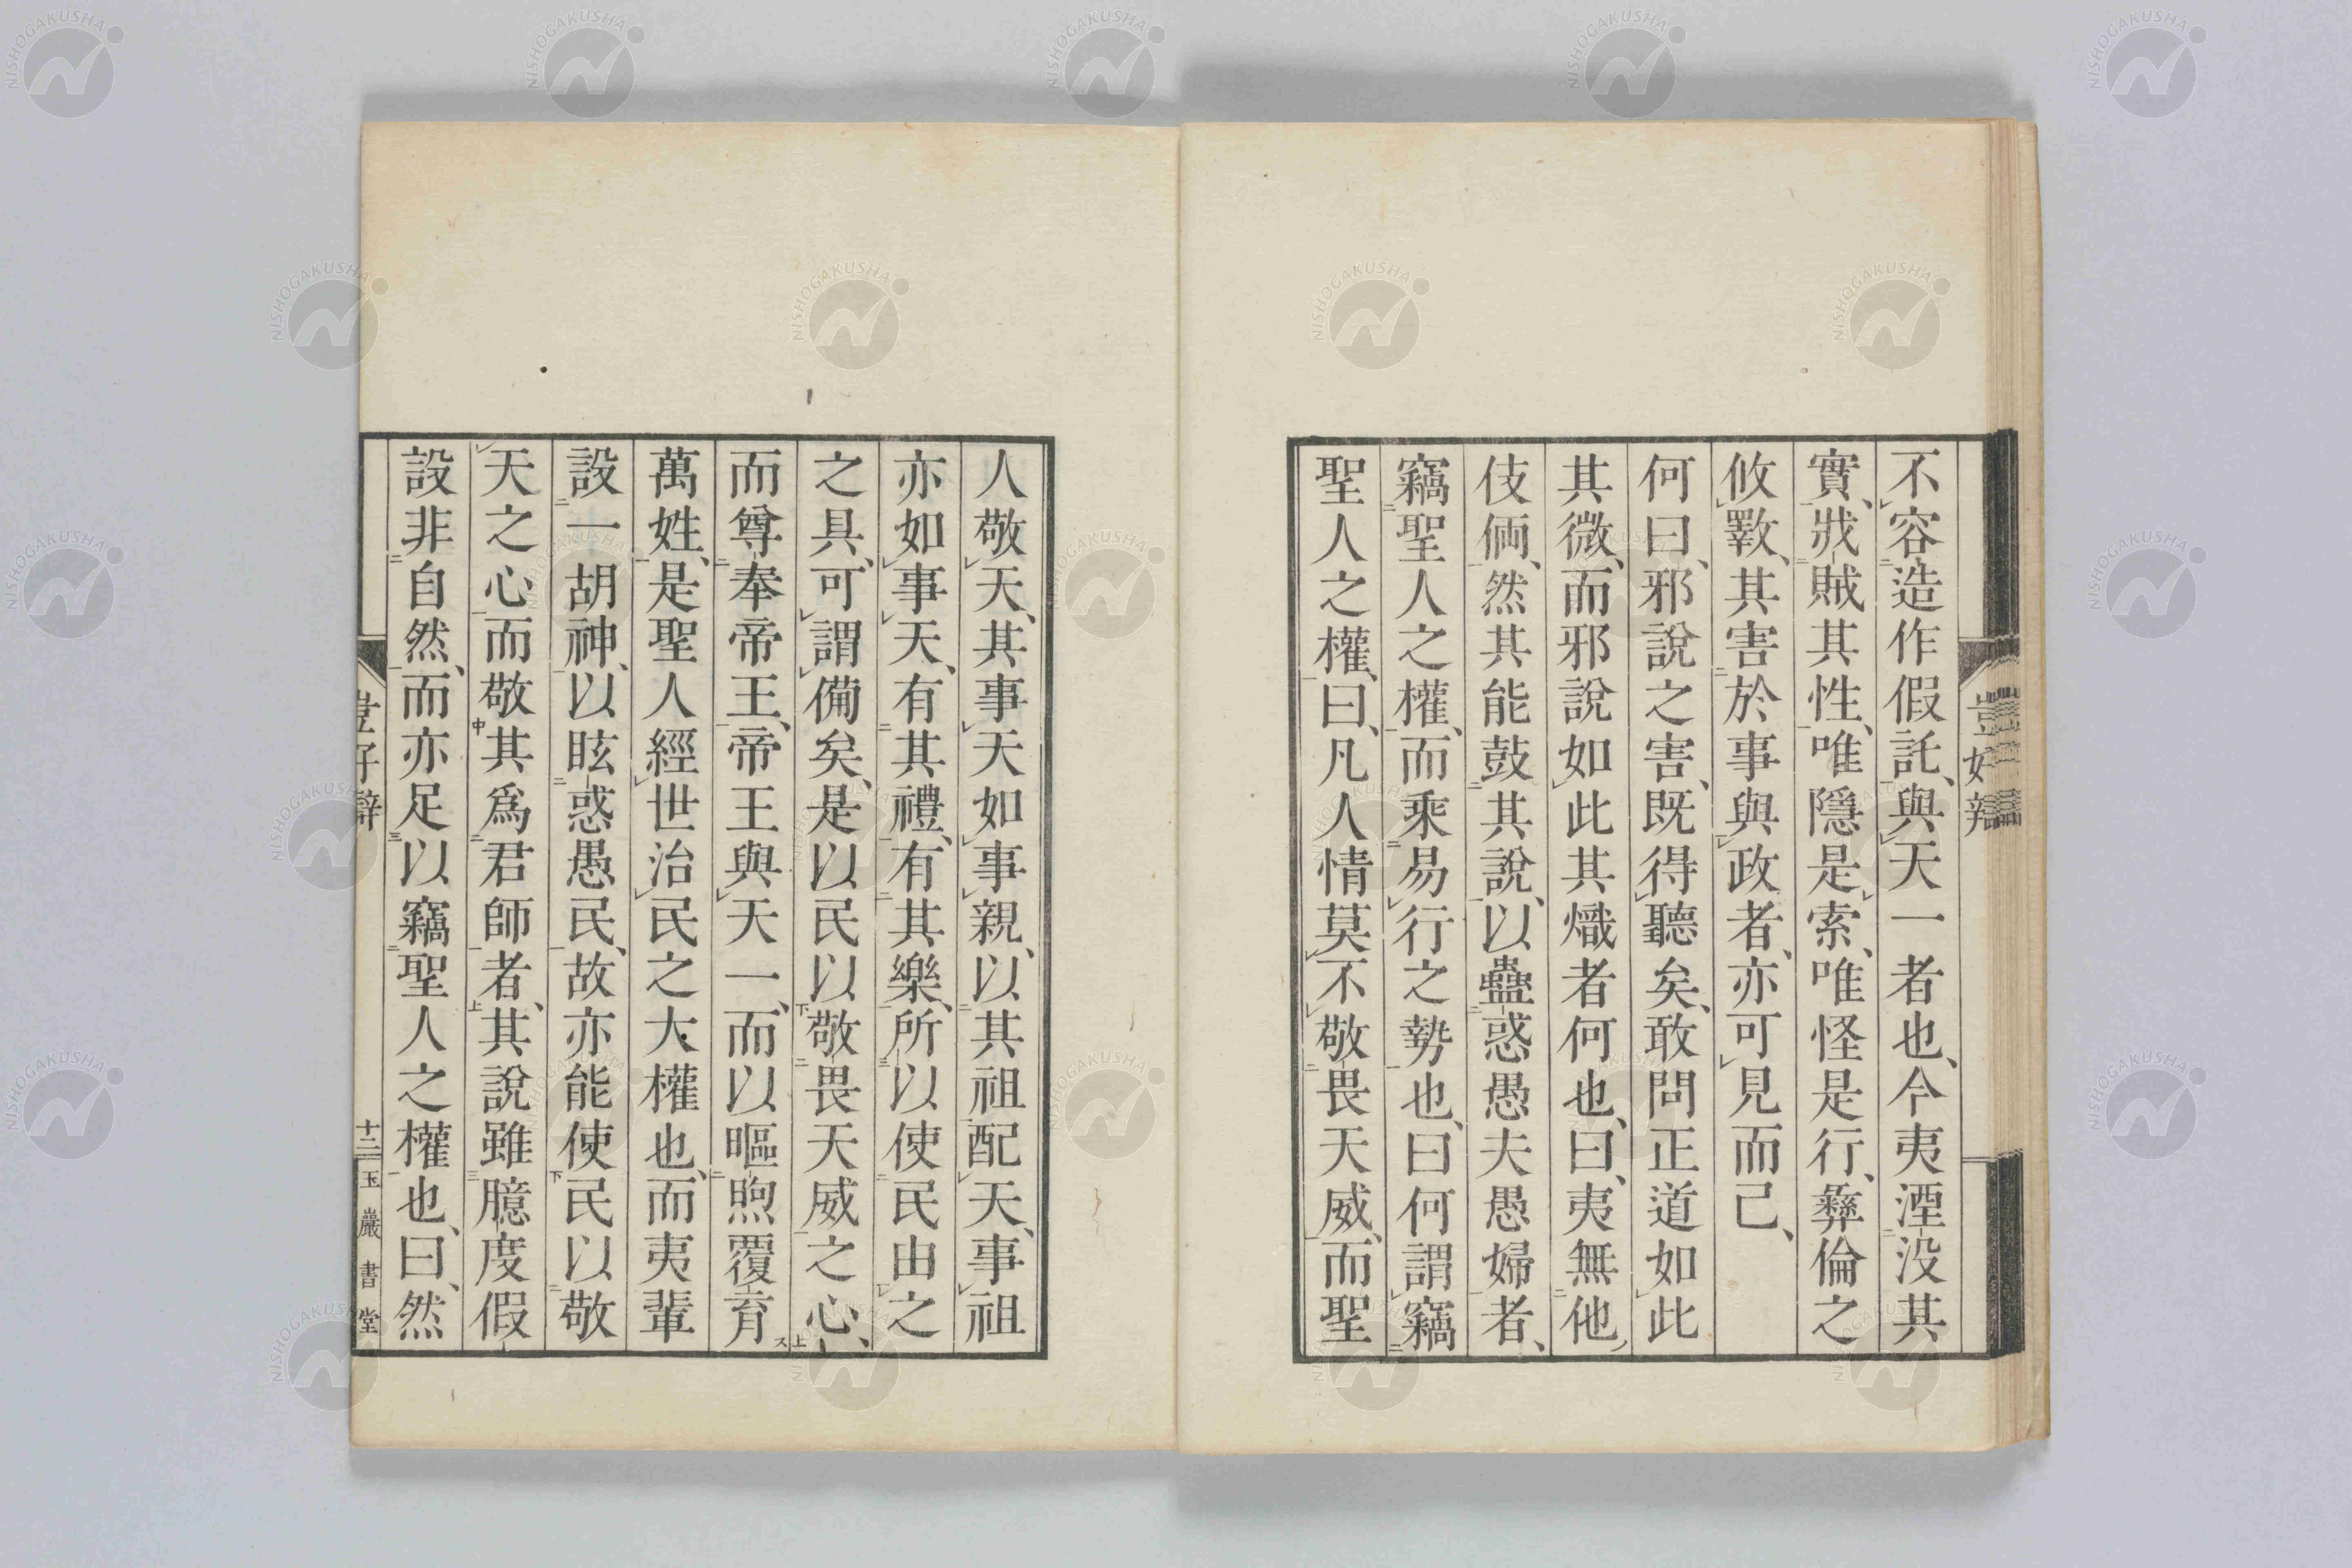 不容造作假託、與天一者也、今夷湮没其
實、戕賊其性、唯隱是索、唯怪是行、彝倫之
攸斁、其害於事與政者、亦可見而己、
何曰、邪說之害、既得聽矣、敢問正道如此
其微、而邪說如此其熾者何也、曰、夷無他
伎倆、然其能鼓其說、以蠱惑愚夫愚婦者、
竊聖人之權、而乘易行之勢也、曰何謂竊
聖人之權、曰、凡人情莫不敬畏天威、而聖
人敬天、其事天如事親、以其祖配天、事祖
亦如事天、有其禮、有其樂、所以使民由之
之具、可謂備矣、是以民以敬畏天威之心、
而尊奉帝王、帝王與天一、而以嘔煦覆育
萬姓、是聖人經世治民之大權也、而夷輩
設一胡神、以眩惑愚民、故亦能使民以敬
天之心而敬其爲君師者、其說雖臆度假
設非自然、而亦足以竊聖人之權也、曰、然
十二
玉巖書堂
NISHOGAKUSHA